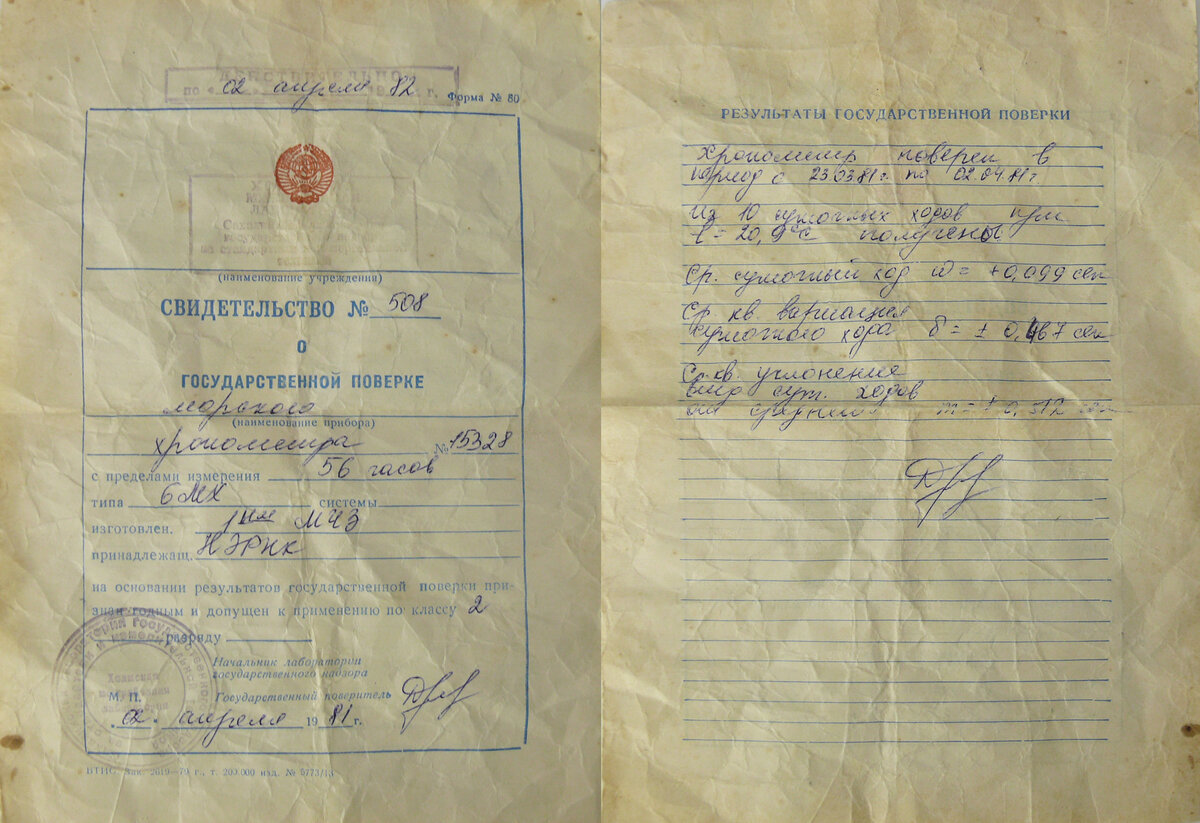 ДЕЙСТВИТЕЛЬНО
по 02 апреля 82 г.
Форма № 80
(наименование учреждения)
СВИДЕТЕЛЬСТВО № 508
О
ГОСУДАРСТВЕННОЙ ПОВЕРКЕ
морского
(наименование прибора)
хронометра № 15328
с пределами измерения 56 часов
типа 6МХ системы
изготовлен. 1ым МЧЗ
принадлежащ. НЭРПК
на основании результатов государственной поверки при-
знан годным и допущен к применению по классу 2
разряду
Начальник лаборатории
государственного надзора
М. П. Государственный поверитель
02 апреля 1981 г.
ВТИС. Зак. 2619—79 г., т. 200.000 изд. № 5773/43
РЕЗУЛЬТАТЫ ГОСУДАРСТВЕННОЙ ПОВЕРКИ
Хронометр поверен в
период с 23.03.81г. по 02.04.81г
Из 10 суточных ходов при
t = 20,9°С получены
Ср. суточный ход ω = +0,099 сек
Ср. кв. вариация
суточного хода δ = ± 0,467 сек
Ср. кв. уклонение
сут. ходов